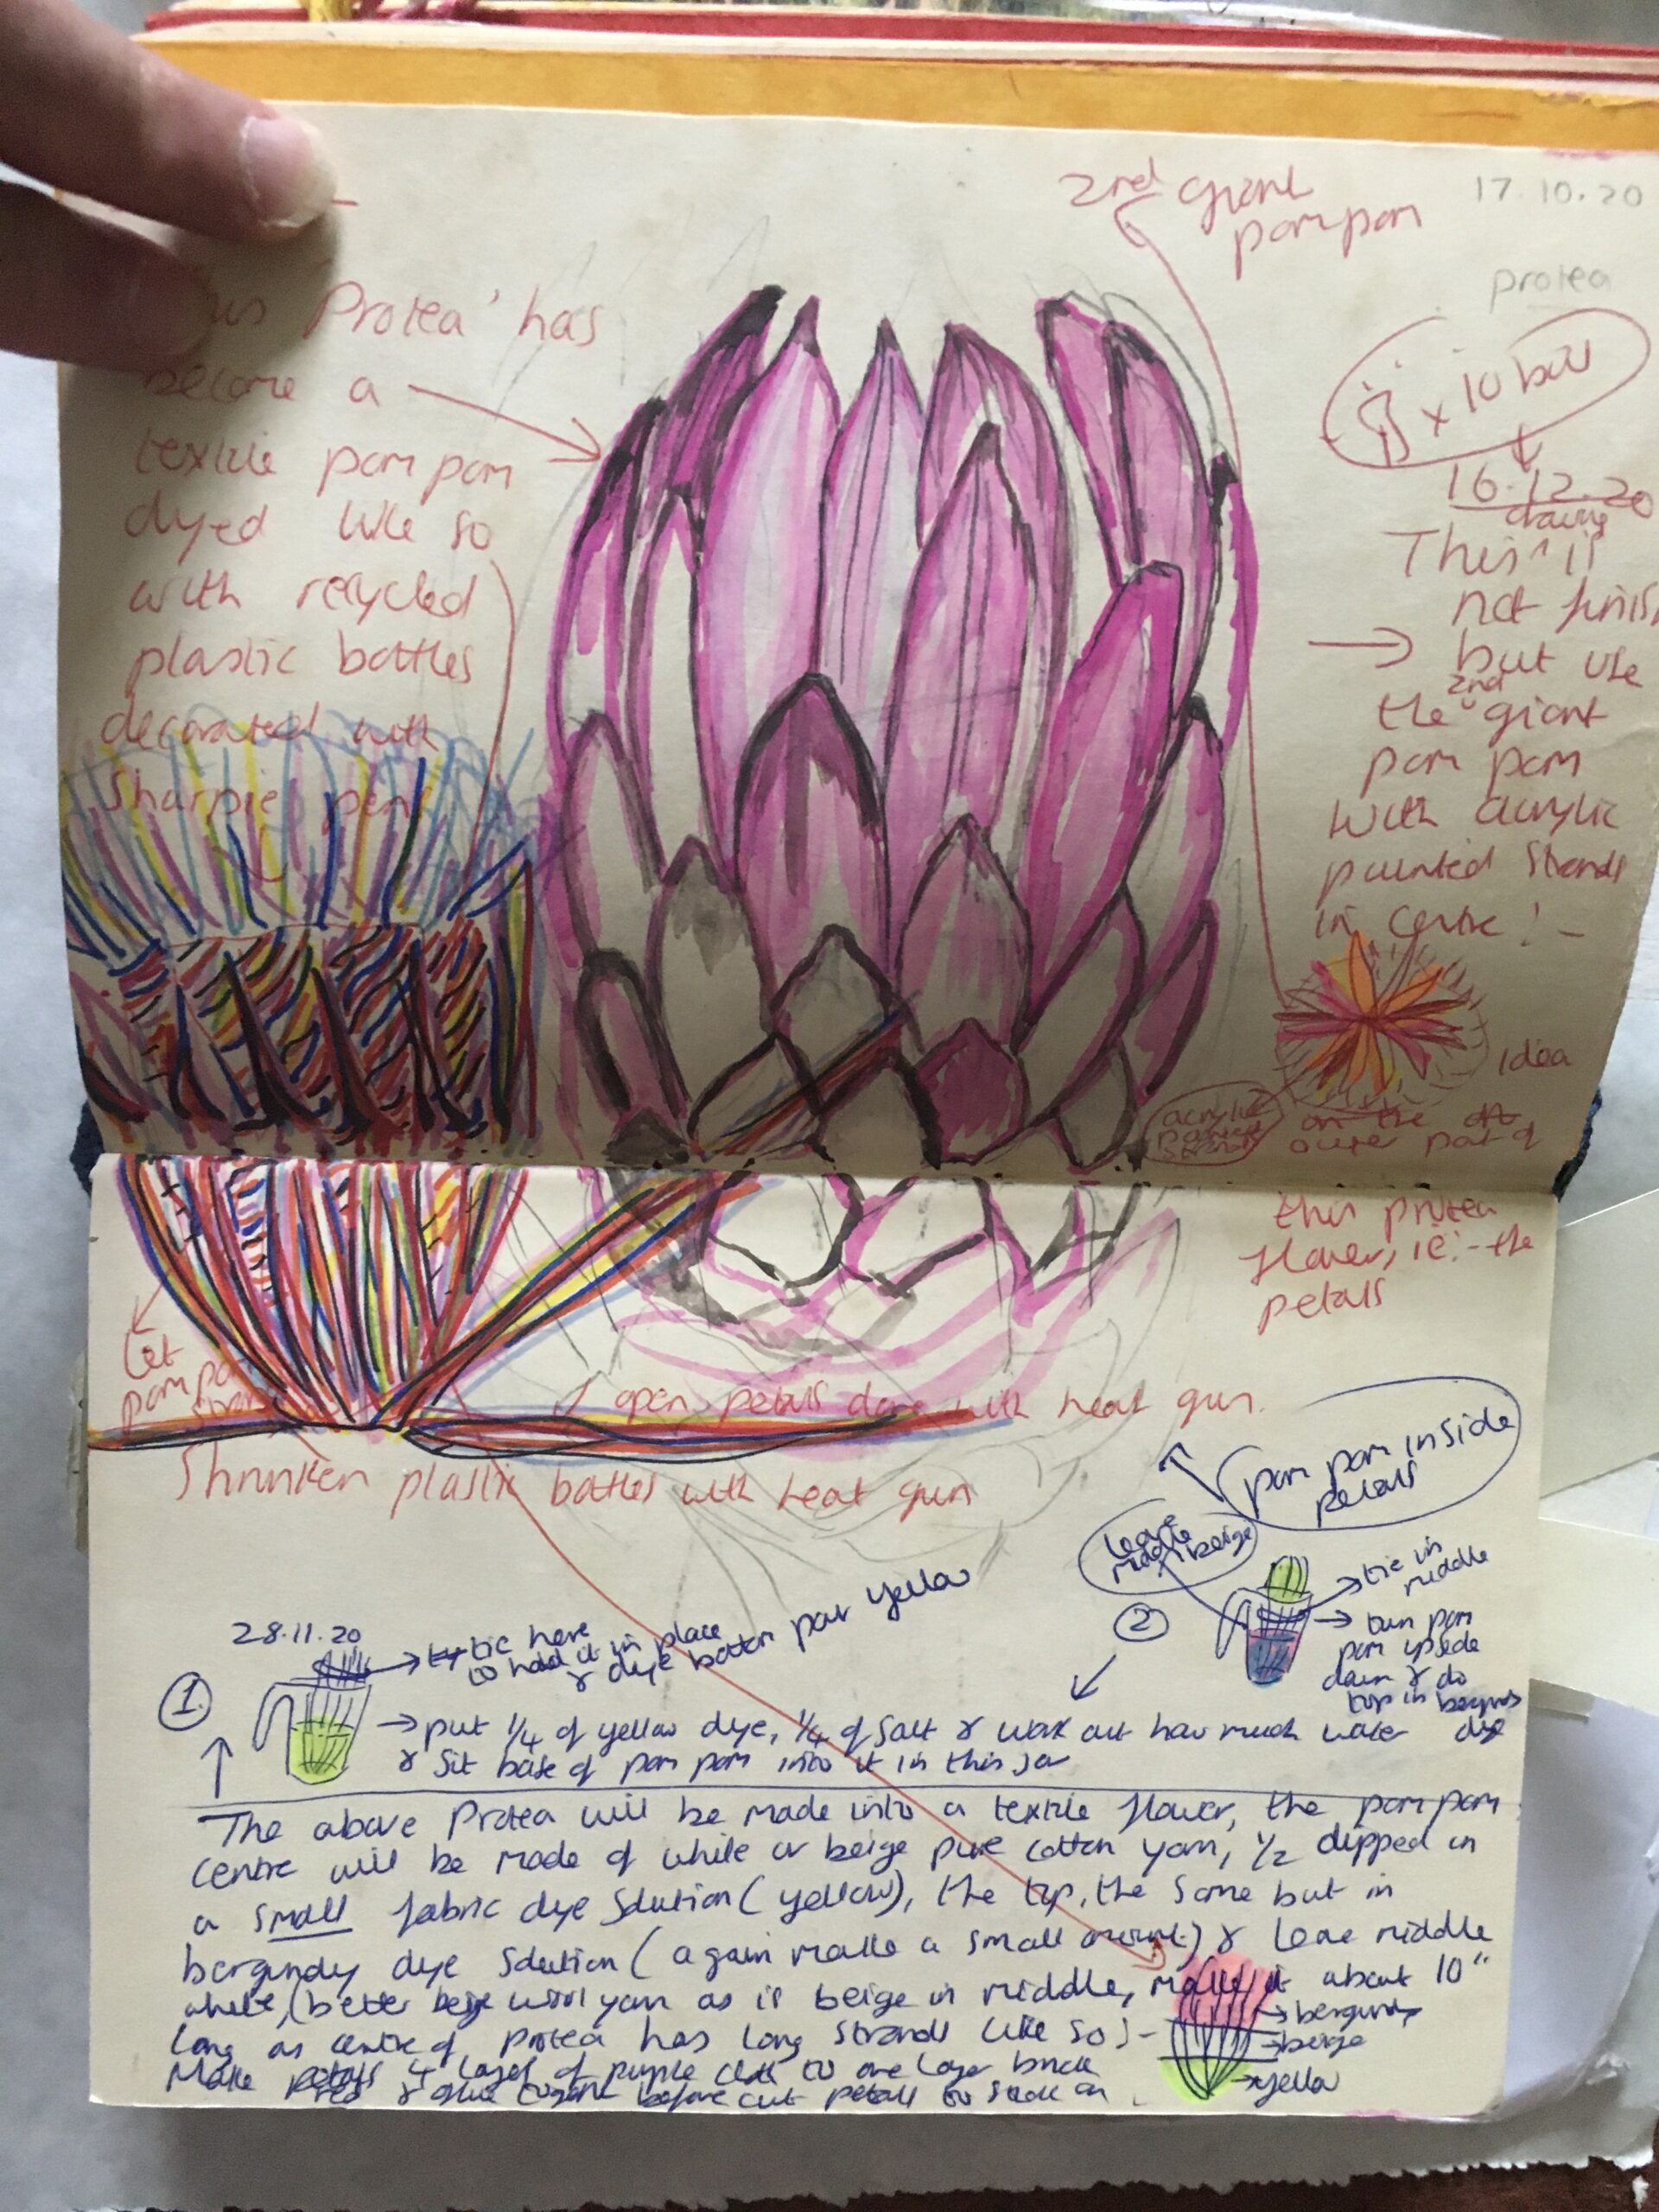 17.10.20
protea
2nd giant
pom pom
Protea' has
become a
textile pom pom
dyed like so
with recycled
plastic bottles
decorated with
sharpie pens
x 10
16.12.20
drawing
This is
not finish
but use
the 2nd giant
pom pom
with acrylic
painted strands
in centre! -
Idea
acrylic
painted
strands
on the
outer part of
this protea
flower, ie:- the
petals
Let
pom pom
open petals done with heat gun.
Shrunken plastic bottles with heat gun
pom pom inside
petals
leave
middle beige
2
tie in
middle
turn pom
pom upside
down & do
top in bergundy
dye
28.11.20
1
tie here
to hold it in place
& dye bottom part yellow
put 1/4 of yellow dye, 1/4 of salt & work out how much water
& sit base of pom pom into it in this jar
The above Protea will be made into a textile flower, the pom pom
centre will be made of white or beige pure cotton yarn, 1/2 dipped in
a small fabric dye solution (yellow), the top, the same but in
bergundy dye solution (again make a small amount) & leave middle
white, (better beige wool yarn as is beige in middle, make it about 10"
long as centre of protea has long strands like so :-
bergundy
beige
yellow
Make petals 4 layers of purple cloth to one layer
& glue together before cut petals to stick on.